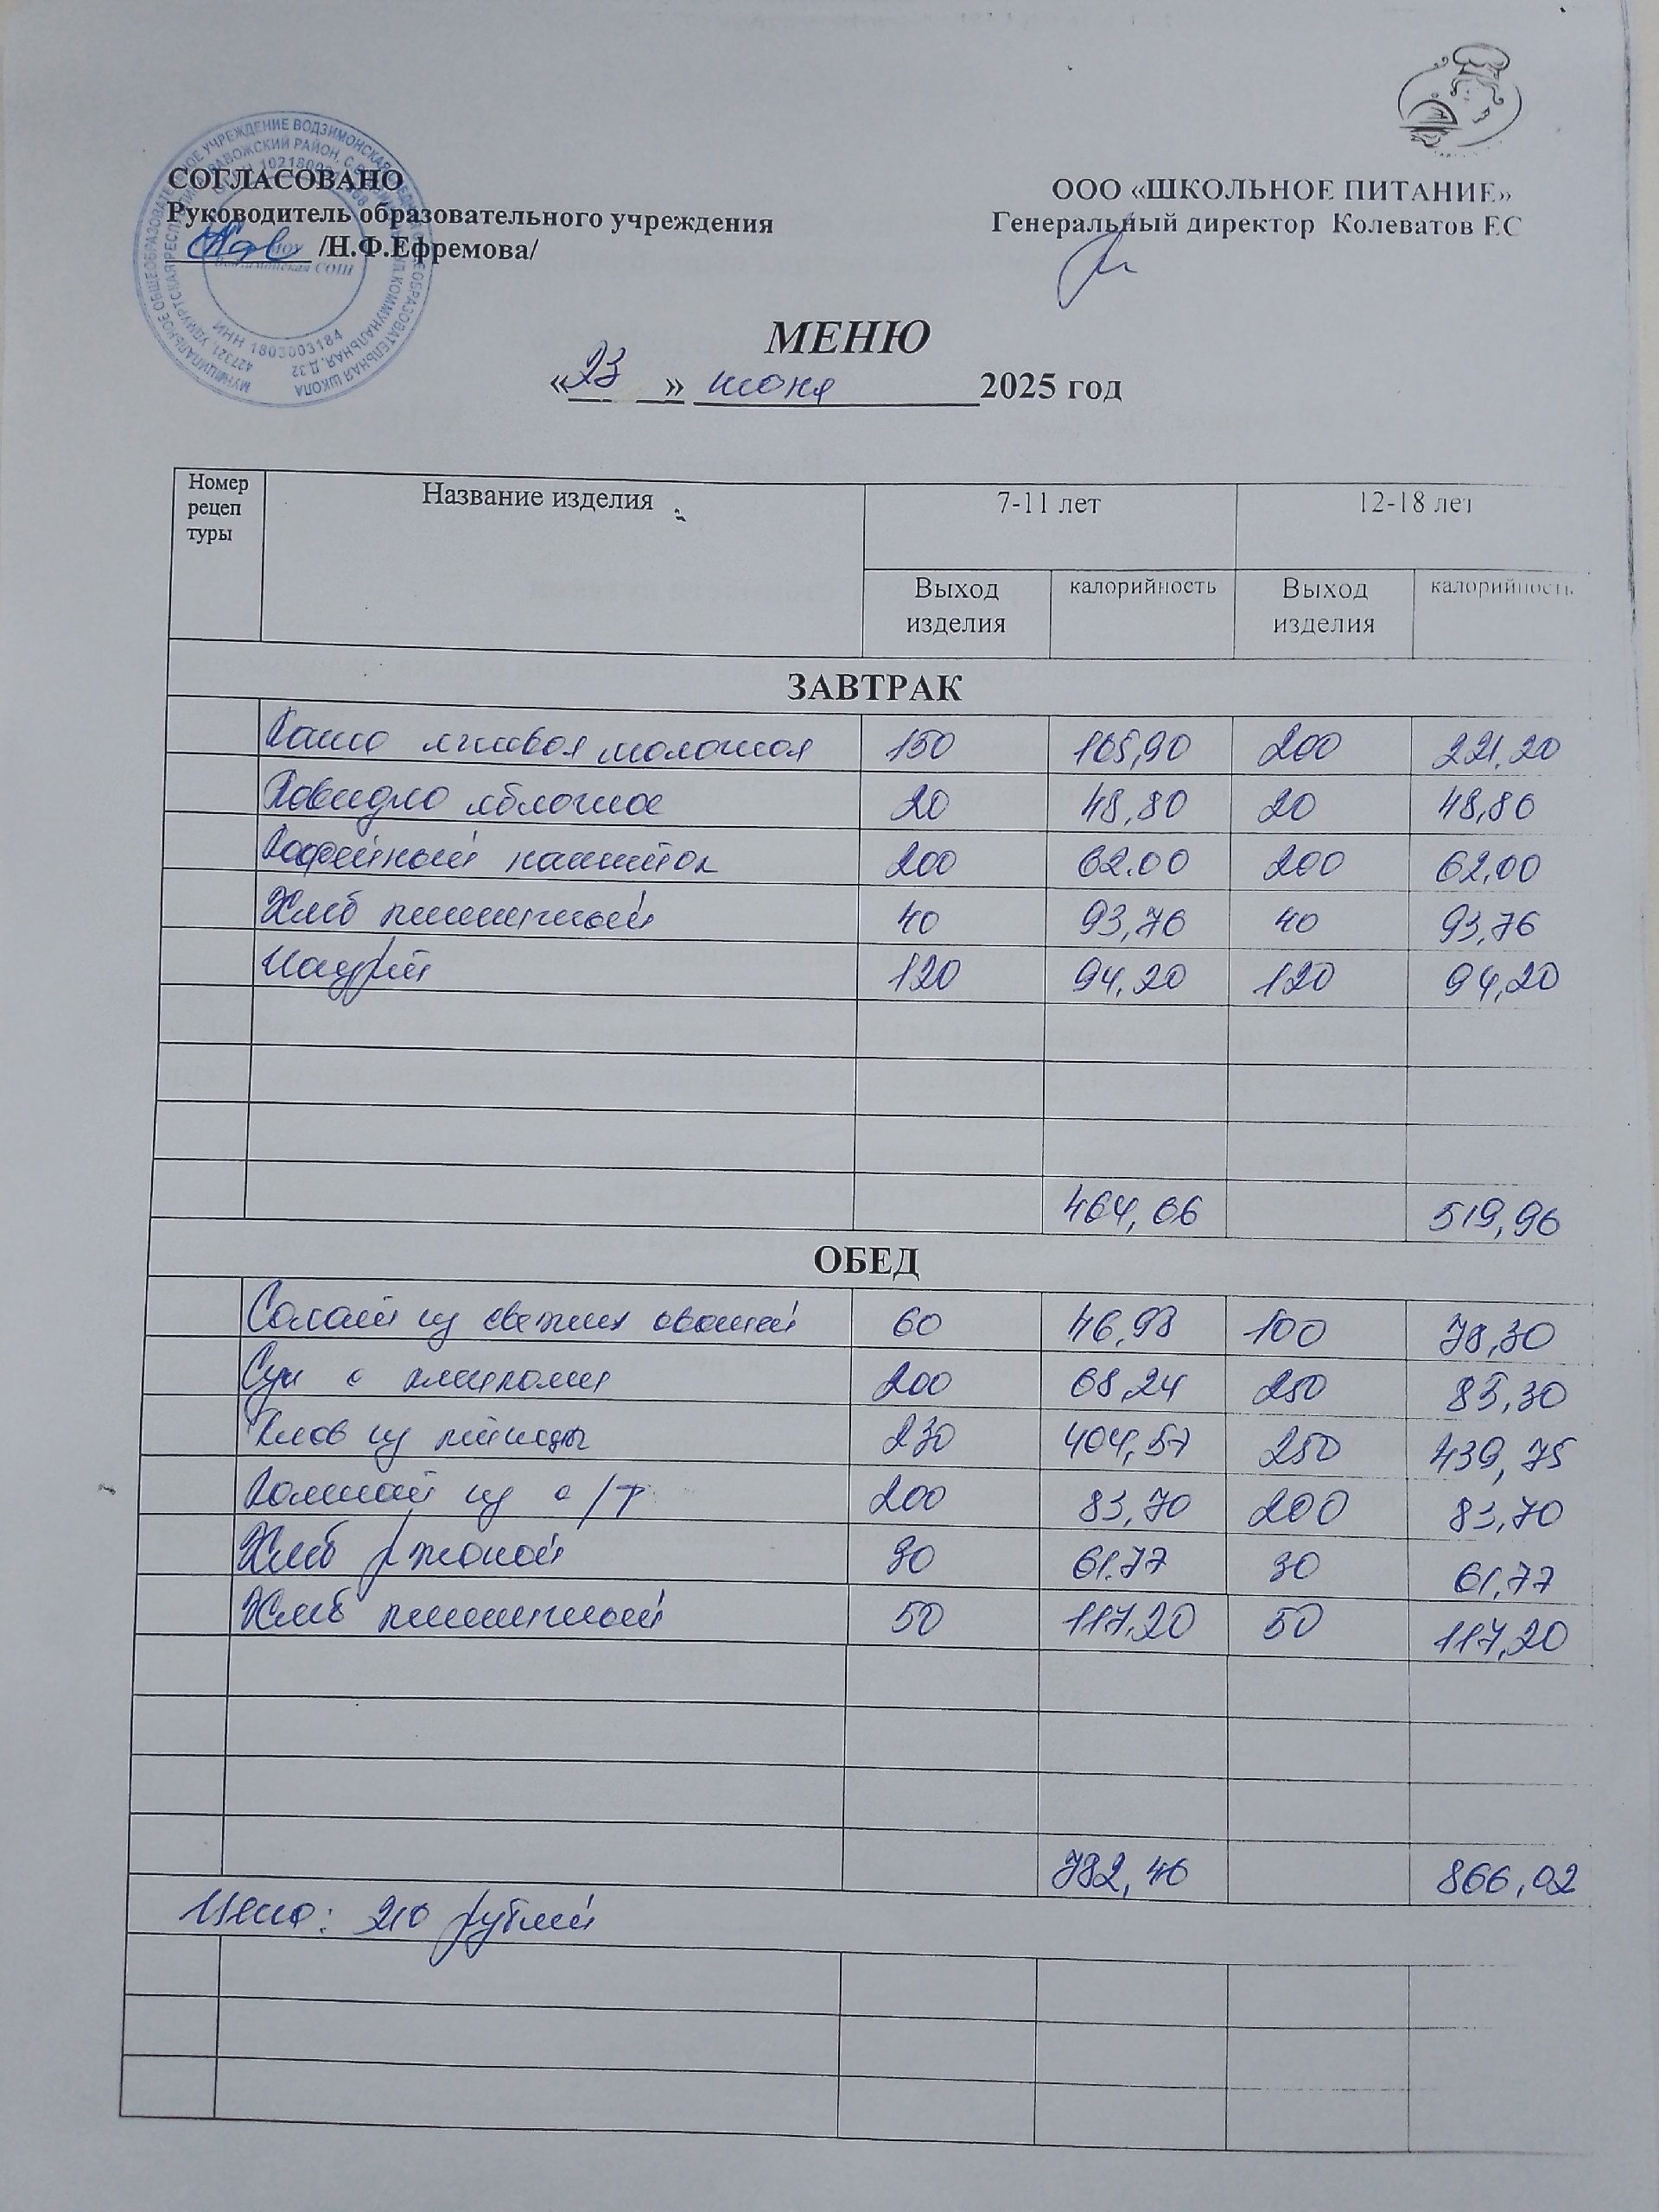 СОГЛАСОВАНО
Руководитель образовательного учреждения
/Н.Ф.Ефремова/
ООО «ШКОЛЬНОЕ ПИТАНИЕ»
Генеральный директор Колеватов ЕС
МУНИЦИПАЛЬНОЕ ОБЩЕОБРАЗОВАТЕЛЬНОЕ УЧРЕЖДЕНИЕ ВОДЗИМОНСКАЯ СРЕДНЯЯ ОБЩЕОБРАЗОВАТЕЛЬНАЯ ШКОЛА
ИНН 1803003184
МЕНЮ
«23» июня 2025 год
Номер рецеп туры Название изделия 7-11 лет 12-18 лет
Выход изделия калорийность Выход изделия калорийность
ЗАВТРАК
Каша ячневая молочная 150 165,90 200 221,20
Повидло яблочное 20 48,80 20 48,80
Кофейный напиток 200 62.00 200 62,00
Хлеб пшеничный 40 93,76 40 93,76
Йогурт 120 94,20 120 94,20
464,66 519,96
ОБЕД
Салат из свежих овощей 60 46,98 100 78,30
Суп с клецками 200 68,24 250 85,30
Плов из птицы 230 404,57 250 439,75
Компот из с/ф 200 83,70 200 83,70
Хлеб ржаной 30 61.77 30 61,77
Хлеб пшеничный 50 117,20 50 117,20
782,46 866,02
Цена: 210 рублей